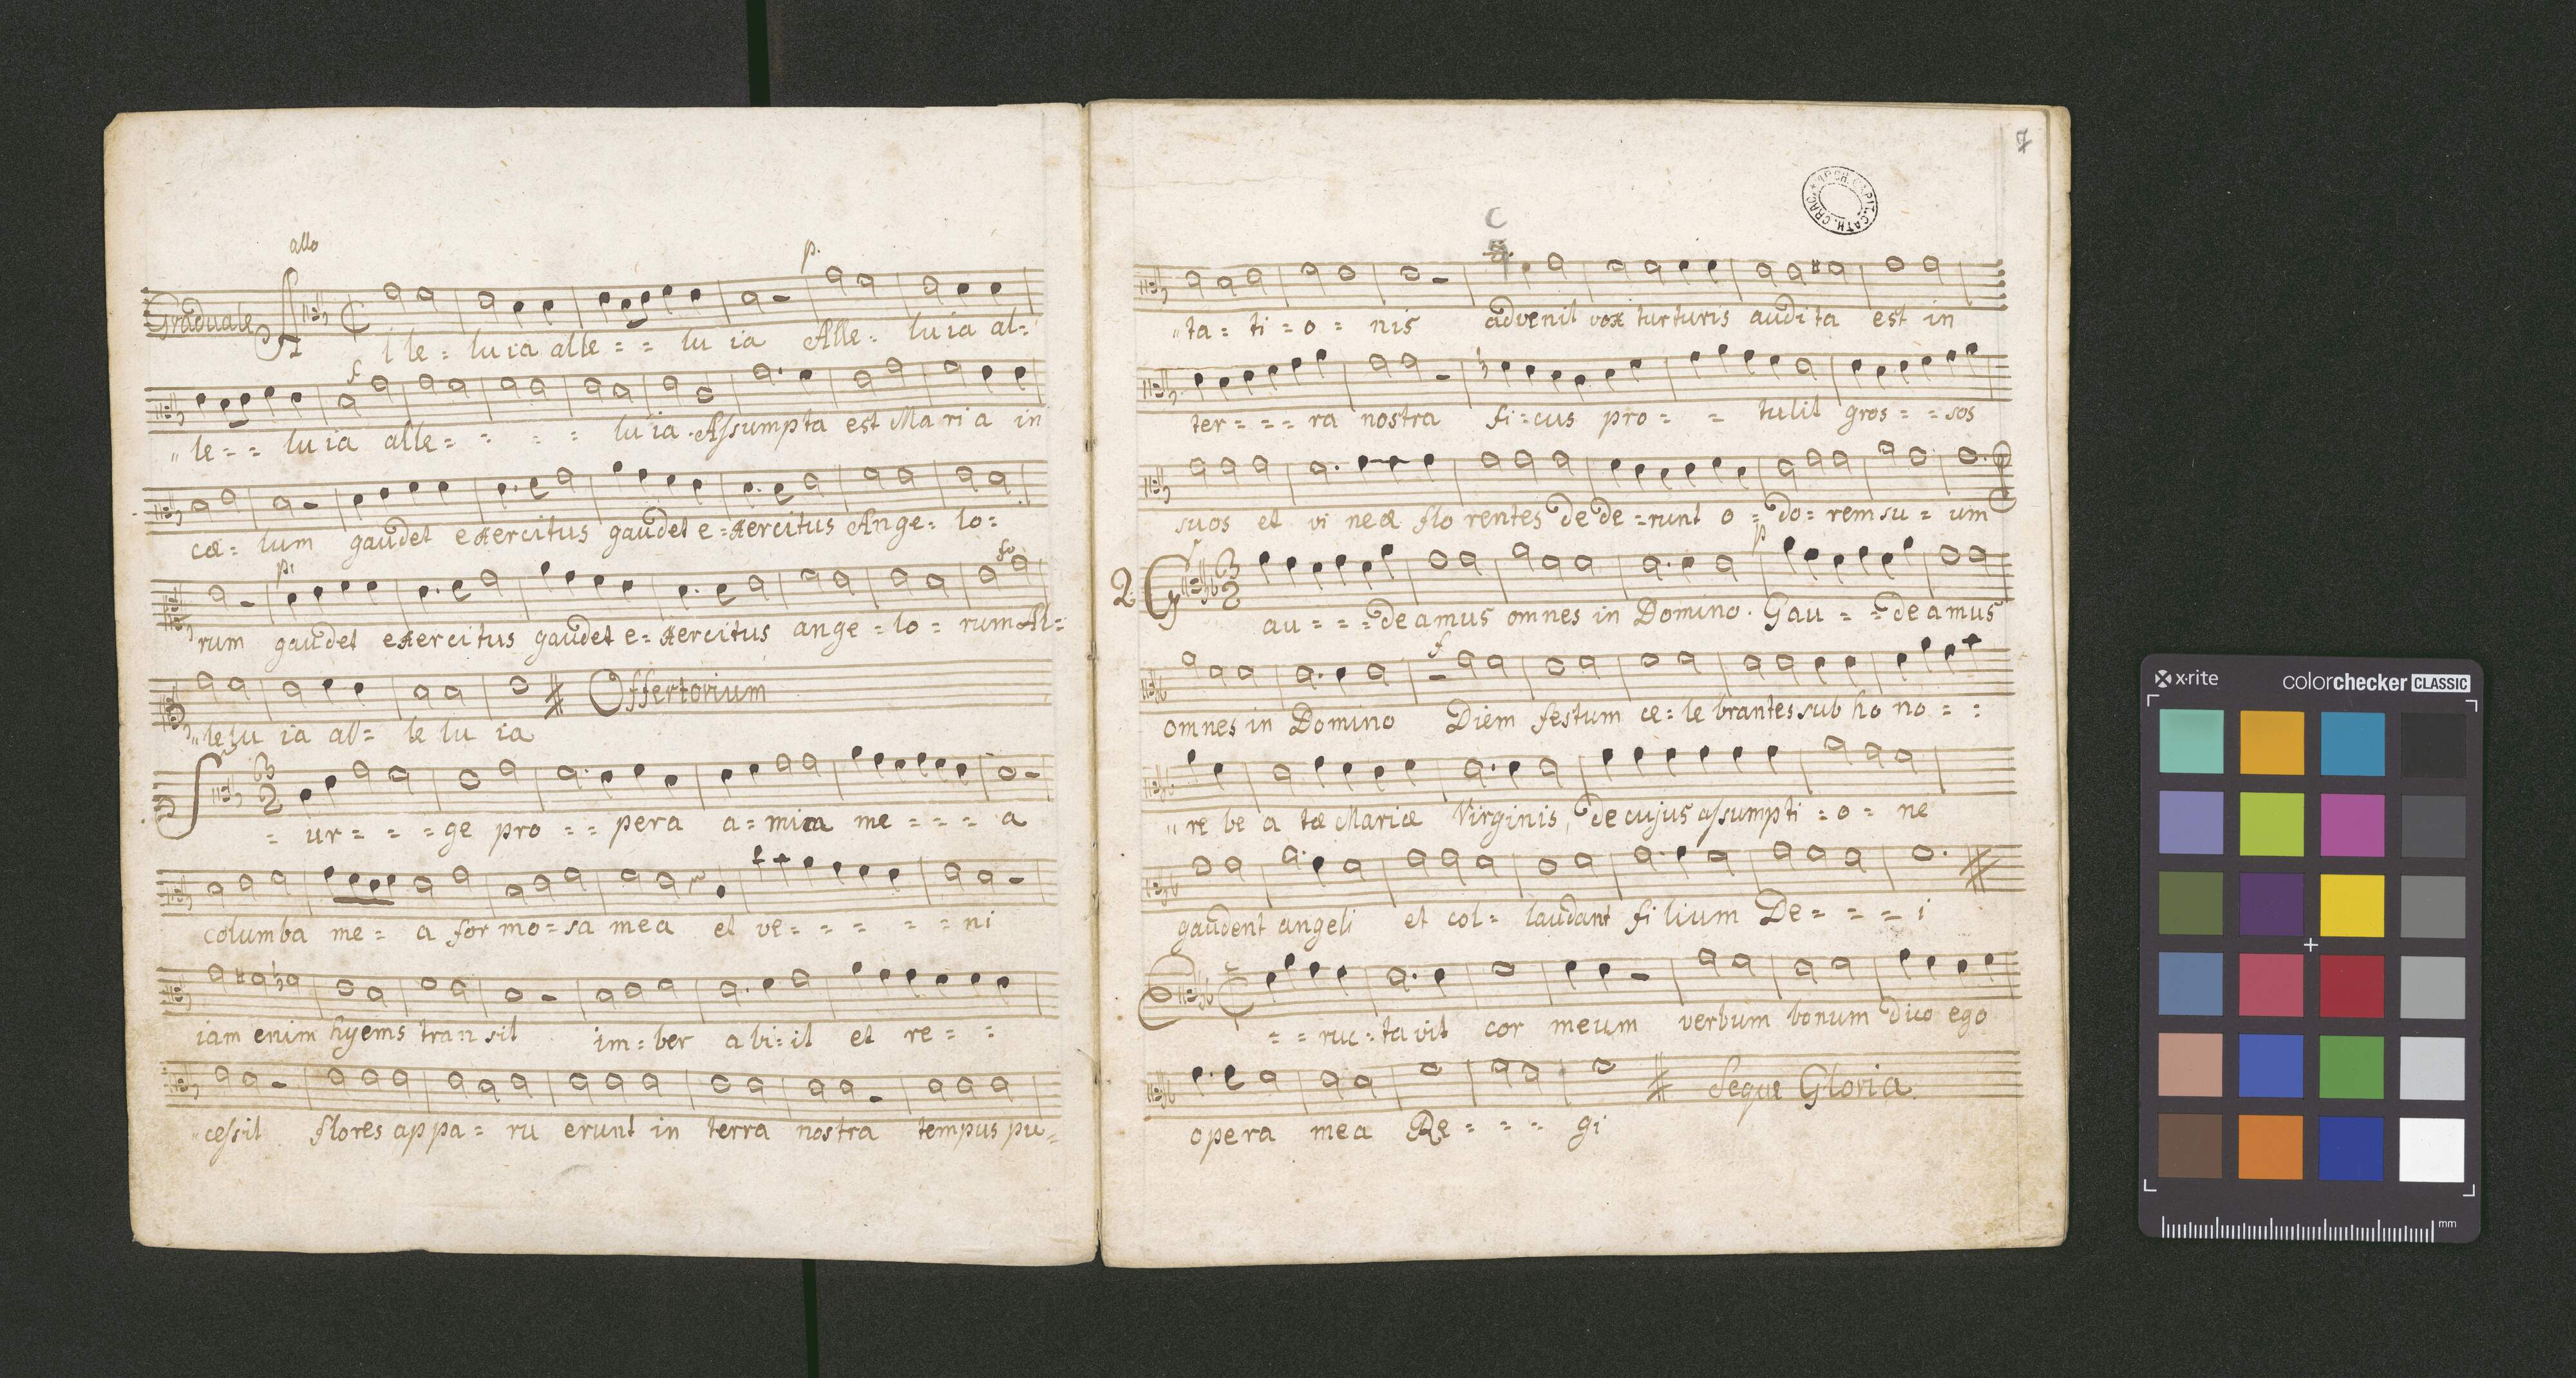 allo
p.
Graduale
Al le = lu ia alle = = lu ia Alle = lu ia al =
f
" le = = lu ia alle = = = = lu ia . Assumpta est Ma ri a in
cæ = lum gaudet exercitus gaudet e = xercitus Ange = lo =
pi fo
rum gaudet exercitus gaudet e = xercitus ange = lo = rum Al =
Offertorium
" le lu ia al = le lu ia
3
2
S = ur = = = ge pro = = pera a = mica me = = = a
columba me = a for mo = sa mea et ve = = = = = ni
iam enim hyems tran sit im = ber a bi = it et re = =
" cessit flores appa = ru erunt in terra nostra tempus pu =
7
ARCH. CAPIT. CATH. CRAC.
C
" ta = ti = o = nis advenit vox turturis audi ta est in
ter = = = ra nostra fi = cus pro = = tulit gros = = sos
suos et vi neæ flo rentes de de = runt o = do = rem su = um
f p
2. 3
2
G au = = = de amus omnes in Domino . Gau = = de amus
f
omnes in Domino Diem festum ce = le brantes sub ho no = =
" re be a tæ Mariæ Virginis, de cujus assumpti = o = ne
gaudent angeli et col = laudant fi lium De = = = i
E = = ruc = ta vit cor meum verbum bonum dico ego
Seque Gloria
opera mea Re = = = gi
x·rite colorchecker CLASSIC
mm